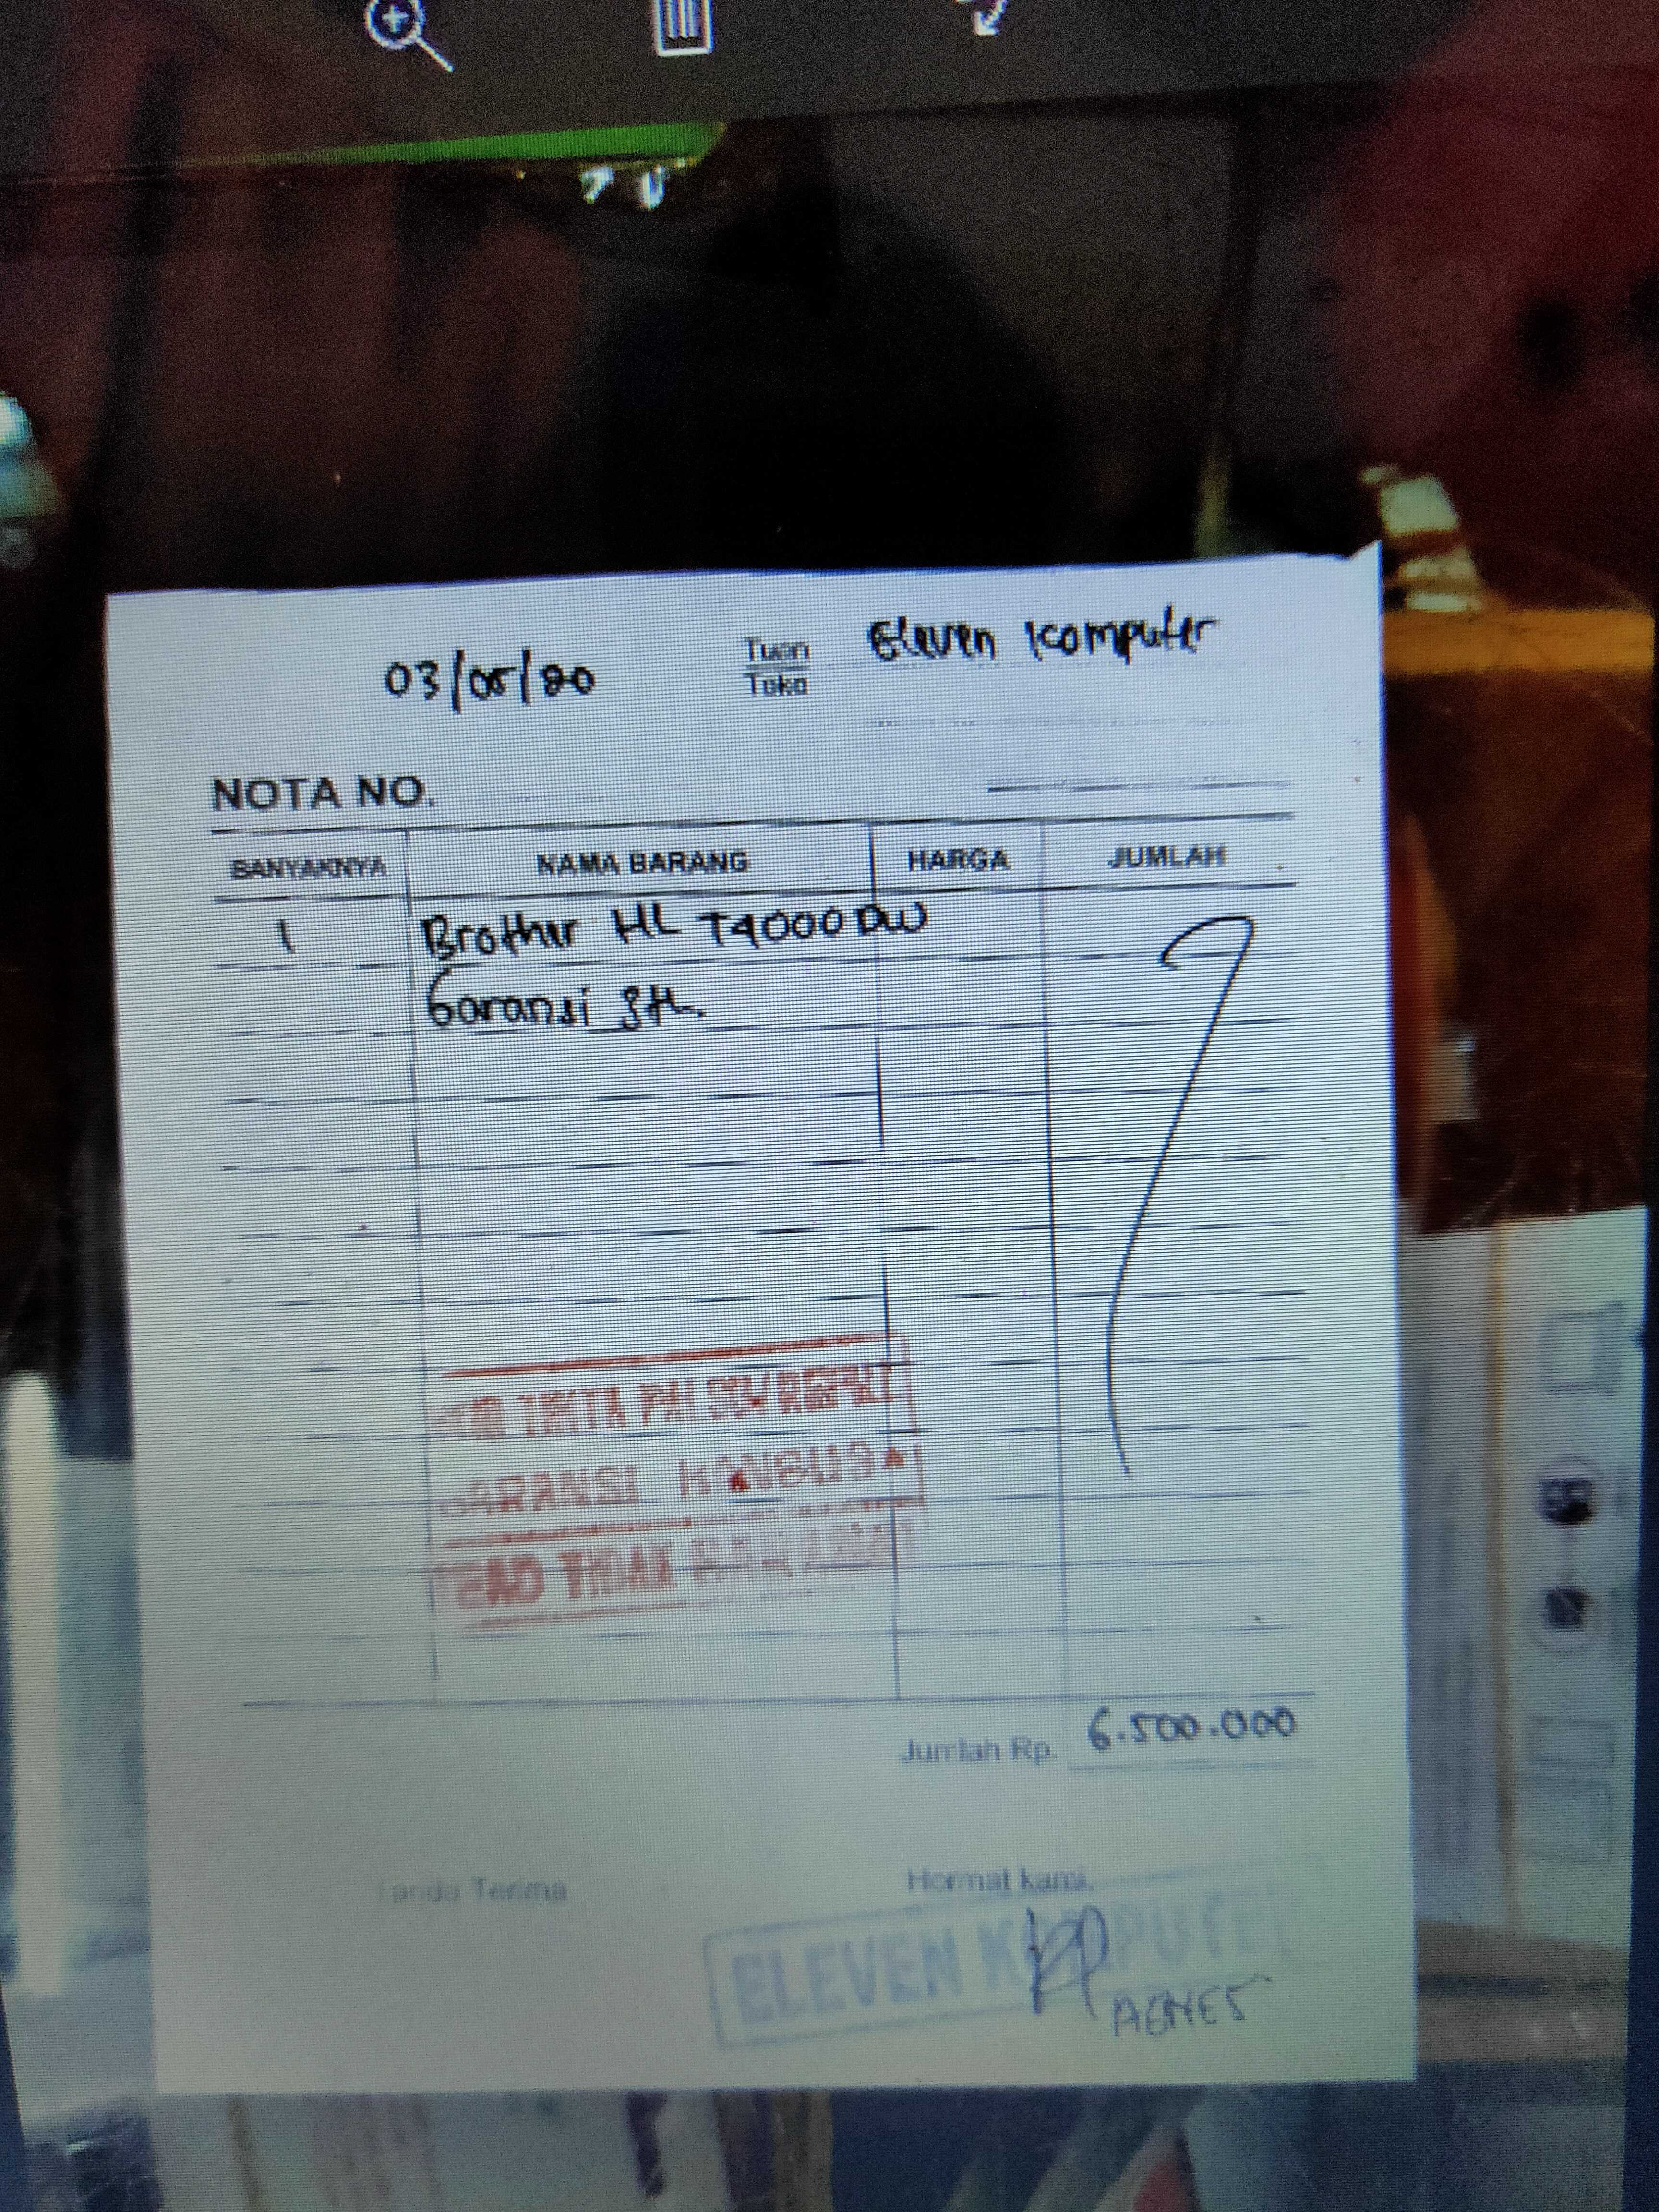 03/05/20
Tuan
Toko
Eleven Komputer
NOTA NO.
BANYAKNYA NAMA BARANG HARGA JUMLAH
1 Brother HL T4000DW
Garansi 3th.
TINTA PALSU
GARANSI HANGUS
TIDAK
Jumlah Rp. 6.500.000
Tanda Terima
Hormat kami,
ELEVEN KOMPUTER
AGNES